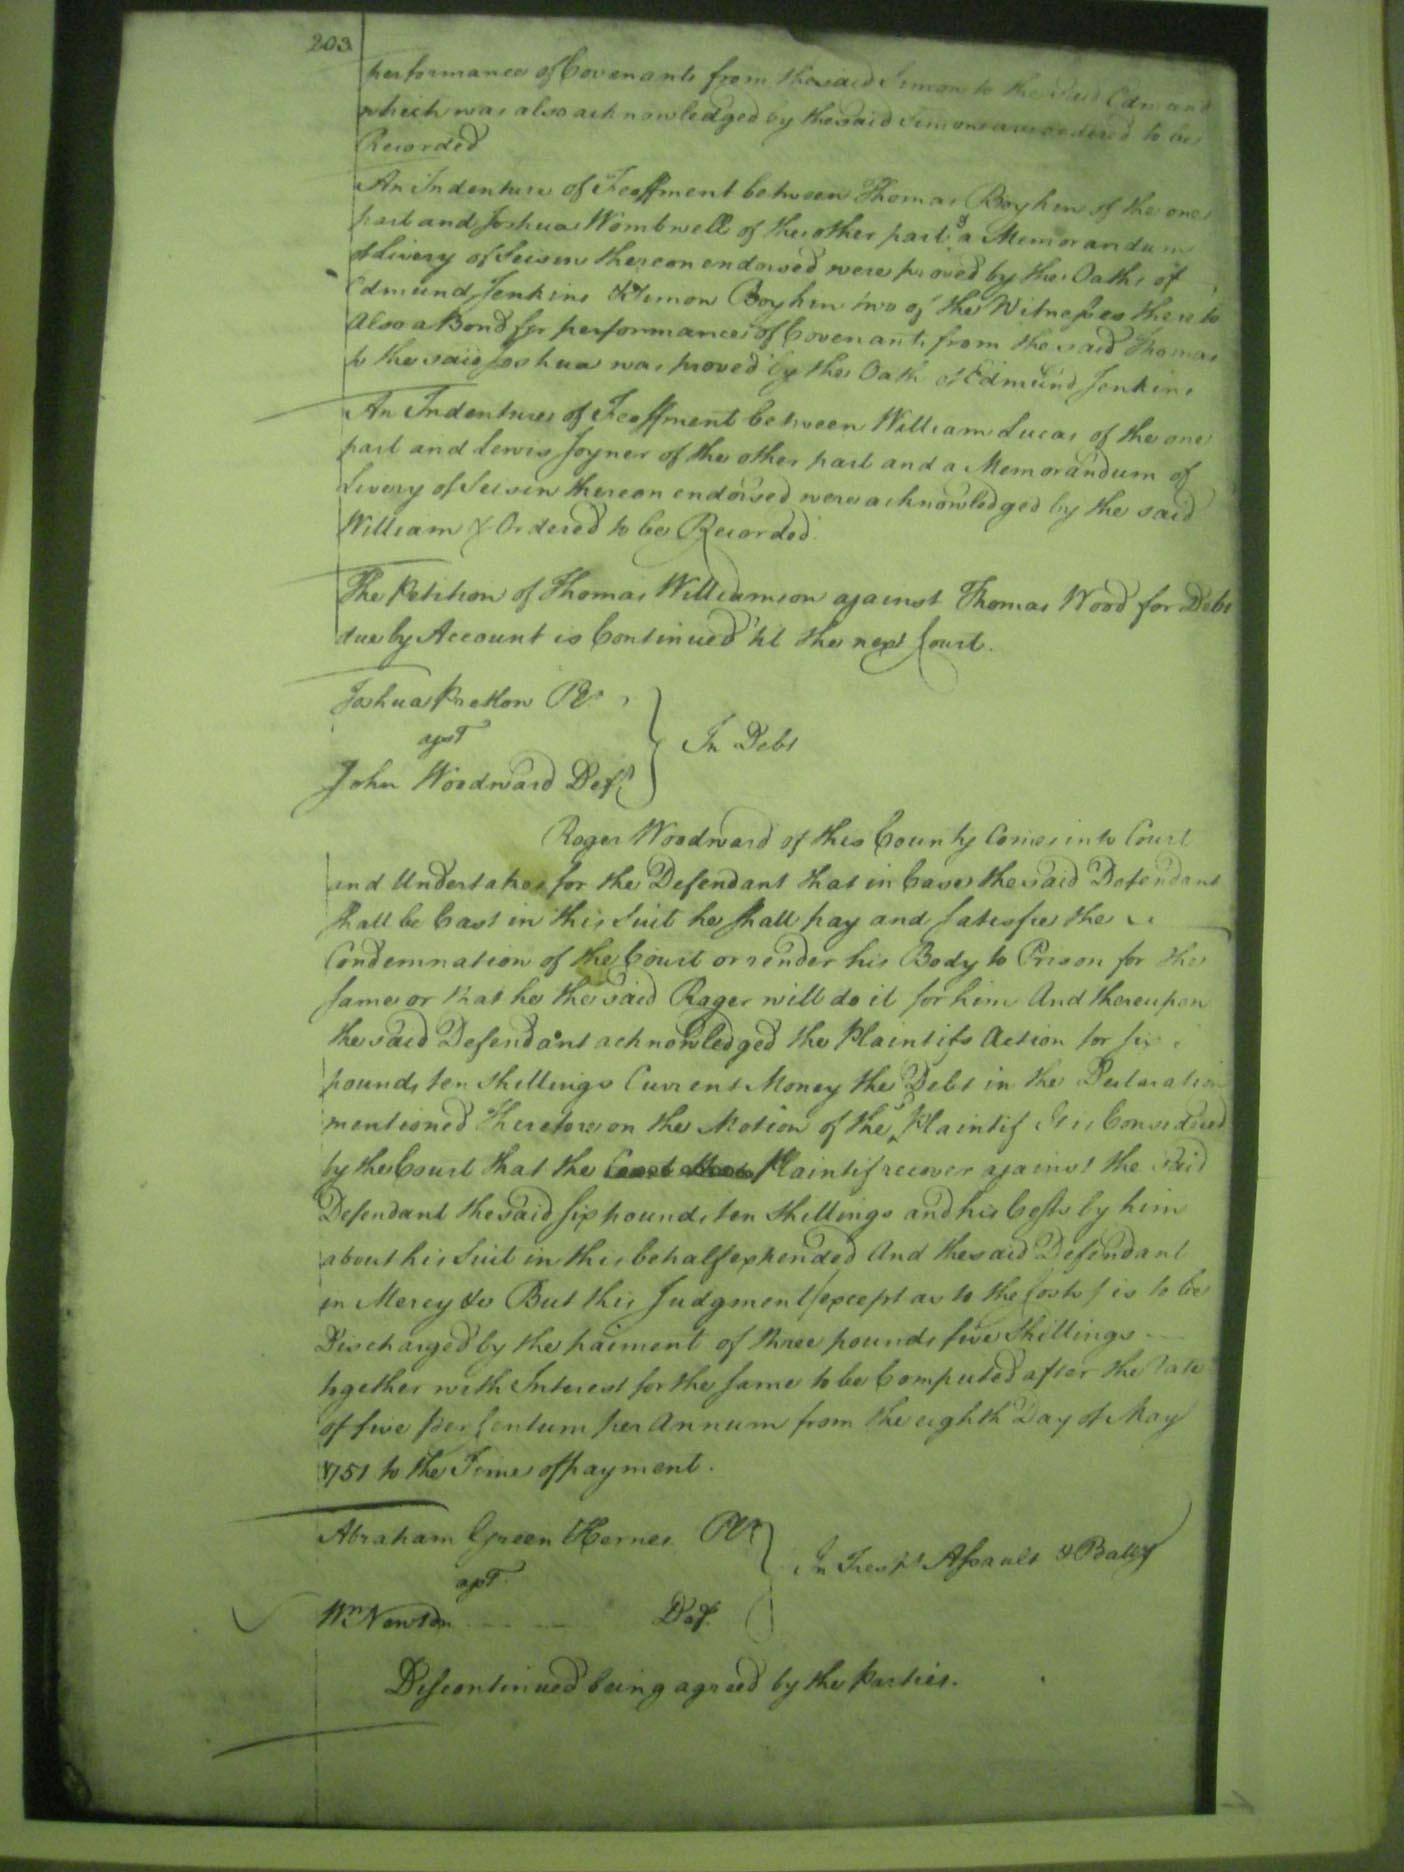 203
performance of Covenants from the said Simon to the said Edmund
which was also acknowledged by the said Simon and ordered to be
Recorded
An Indenture of Feoffment between Thomas Boykin of the one
part and Joshua Wombwell of the other part & a Memorandum
of Livery of Seisin thereon endorsed were proved by the Oaths of
Edmund Jenkins & Simon Boykin two of the Witnesses thereto
Also a Bond for performance of Covenants from the said Thomas
to the said Joshua was proved by the Oath of Edmund Jenkins
An Indenture of Feoffment between William Lucas of the one
part and Lewis Joyner of the other part and a Memorandum of
Livery of Seisin thereon endorsed were acknowledged by the said
William & Ordered to be Recorded.
The Petition of Thomas Williamson against Thomas Wood for Debt
due by Account is Continued 'til the next Court.
Joshua Pretlow Pl
agst
John Woodward Def.
In Debt
Roger Woodward of this County Comes into Court
and Undertakes for the Defendant that in Case the said Defendant
shall be Cast in this Suit he shall pay and satisfie the
Condemnation of the Court or render his Body to Prison for the
same or that he the said Roger will do it for him And thereupon
the said Defendant acknowledged the Plaintifs Action for six
pounds ten shillings Current Money the Debt in the Declaration
mentioned Therefore on the Motion of the sd Plaintif It is Considered
by the Court that the Plaintif recover against the said
Defendant the said six pounds ten shillings and his Costs by him
about his Suit in this behalf expended And the said Defendant
in Mercy &c But this Judgment (except as to the Costs) is to be
Discharged by the paiment of three pounds five shillings
together with Interest for the same to be Computed after the rate
of five per Centum per Annum from the eighth Day of May
1751 to the Time of payment.
Abraham Green Hernes Plt
agst
Wm Newton Def.
In Tresps Assault & Battry
Discontinued being agreed by the Parties.